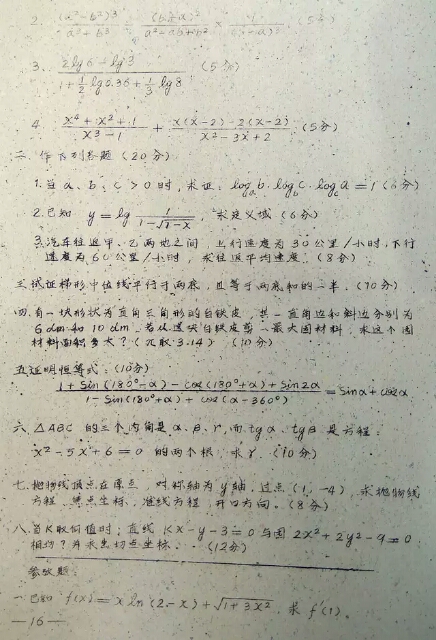 2. (a²-b²)³/a³+b³ ÷ (b-a)²/a²-ab+b² × (5分)
3. 2lg6-lg3 / 1+½lg0.36+⅓lg8 (5分)
4. x⁴+x²+1 / x³-1 + x(x-2)-2(x-2) / x²-3x+2 (5分)
二. 作下列各题 (20分)
1. 当a、b、c>0时,求证: logₐb·log_b c·log_c a=1 (6分)
2. 已知 y=lg 1/1-√1-x , 求定义域 (6分)
3. 汽车往返甲、乙两地之间 上行速度为30公里/小时,下行
速度为60公里/小时, 求往返平均速度. (8分)
三. 试证梯形中位线平行于两底, 且等于两底和的一半. (10分)
四. 有一块形状为直角三角形的白铁皮, 其一直角边和斜边分别为
6dm和10dm. 若从这块白铁皮剪一最大圆材料, 求这个圆
材料面积多大? (π取3.14) (10分)
五. 证明恒等式: (10分)
1+Sin(180°-α)-cos(180°+α)+Sin2α / 1-Sin(180°+α)+cos(α-360°) = Sinα+cosα
六. △ABC 的三个内角是α、β、γ,而tgα、tgβ是方程:
x²-5x+6=0 的两个根, 求γ. (10分)
七. 抛物线顶点在原点, 对称轴为y轴, 过点(1,-4), 求抛物线
方程, 焦点坐标, 准线方程, 开口方向. (8分)
八. 当K取何值时; 直线Kx-y-3=0与圆2x²+2y²-9=0
相切? 并求出切点坐标. (12分)
参考题:
一. 已知 f(x)=xln(2-x)+√1+3x², 求f'(1).
—16—